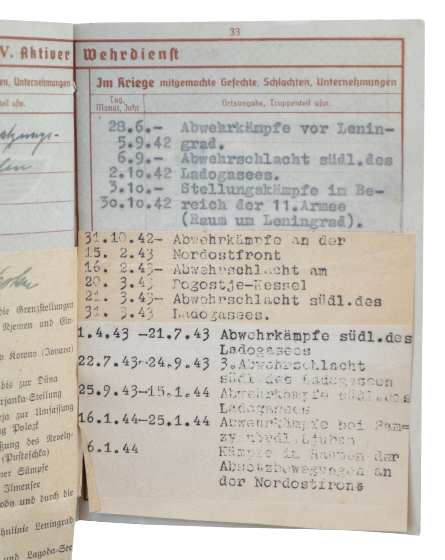 33
V. Aktiver Wehrdienst
en, Unternehmungen
Im Kriege mitgemachte Gefechte, Schlachten, Unternehmungen
teil usw.
Tag, Monat, Jahr
Ortsangabe, Truppenteil usw.
28.6.- Abwehrkämpfe vor Lenin-
5.9.42 grad.
6.9.- Abwehrschlacht südl.des
2.10.42 Ladogasees.
3.10.- Stellungskämpfe im Be-
30.10.42 reich der 11.Armee
(Raum um Leningrad).
31.10.42- Abwehrkämpfe an der
15. 2.43 Nordostfront
16. 2.43- Abwehrschlacht am
20. 3.43 Pogostje-Kessel
21. 3.43- Abwehrschlacht südl.des
31. 3.43 Ladogasees.
1.4.43 -21.7.43 Abwehrkämpfe südl.des
Ladogasees
22.7.43-24.9.43 3.Abwehrschlacht
südl.des Ladogasees
25.9.43-15.1.44 Abwehrkämpfe südl.des
Ladogasees
16.1.44-25.1.44 Abwehrkämpfe bei
nördl.Ljuban
6.1.44 Kämpfe im Rahmen der
Absetzbewegungen an
der Nordostfront
die Grenzstellungen
Njemen und Ein
Kowno (Jonava)
bis zur Düna
-Stellung
zur Umfassung
Polozk
(Pustoschka)
er Sümpfe
Ilmensee
und durch die
hnlinie Leningrad
und Lagoda-See